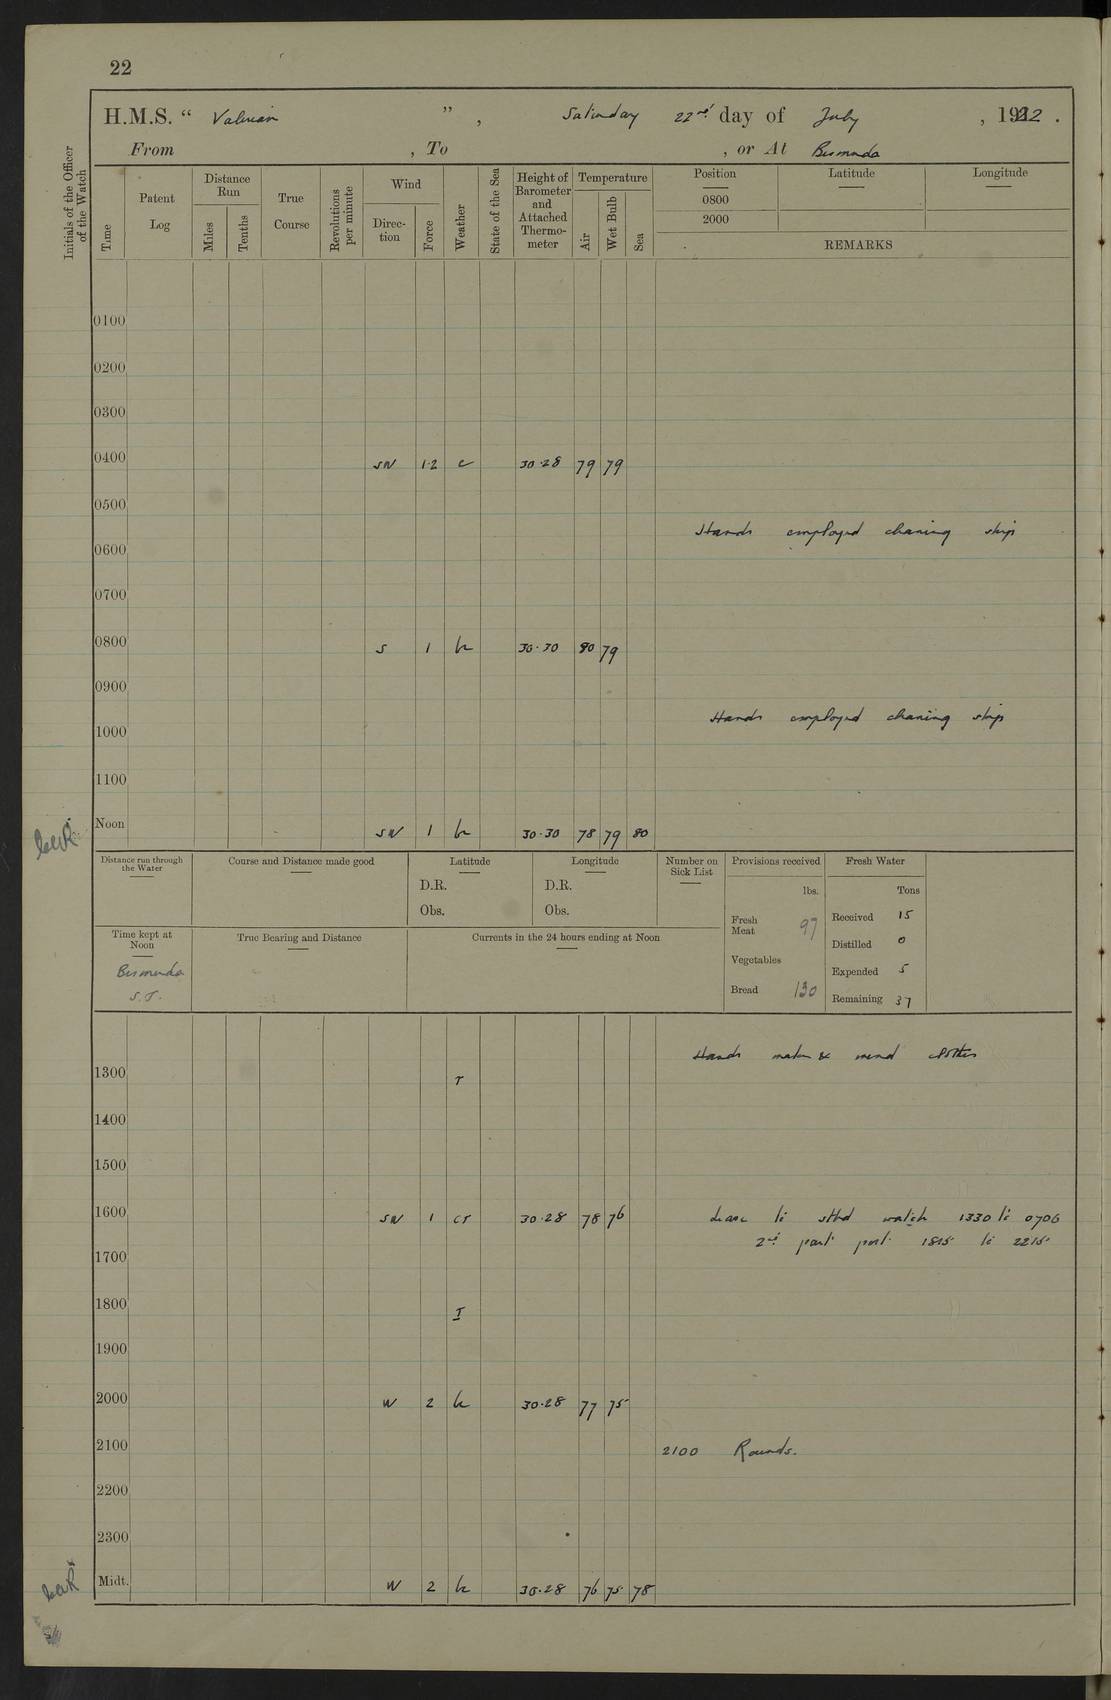 22
H.M.S. “ Valerian ” , Saturday 22nd day of July , 1922 .
From , To , or At Bermuda
Initials of the Officer of the Watch
Time
Patent Log
Distance Run
Miles
Tenths
True Course
Revolutions per minute
Wind
Direction
Force
Weather
State of the Sea
Height of Barometer and Attached Thermometer
Temperature
Air
Wet Bulb
Sea
Position Latitude Longitude
0800
2000
REMARKS
0100
0200
0300
0400 SW 1·2 c 30·28 79 79
0500
Hands employed cleaning ship
0600
0700
0800 S 1 bc 30·30 80 79
0900
Hands employed cleaning ship
1000
1100
Noon SW 1 bc 30·30 78 79 80
Distance run through the Water
Course and Distance made good
Latitude
D.R.
Obs.
Longitude
D.R.
Obs.
Number on Sick List
Provisions received
lbs.
Fresh Meat 97
Vegetables
Bread 130
Fresh Water
Tons
Received 15
Distilled 0
Expended 5
Remaining 37
Time kept at Noon
Bermuda
S.T.
True Bearing and Distance
Currents in the 24 hours ending at Noon
Hands make & mend clothes
1300 r
1400
1500
1600 SW 1 cr 30·28 78 76 Leave to stbd watch 1330 to 0706
2nd part port 1815 to 2215
1700
1800
1900
2000 W 2 bc 30·28 77 75
2100 2100 Rounds.
2200
2300
Midt. W 2 bc 30·28 76 75 78